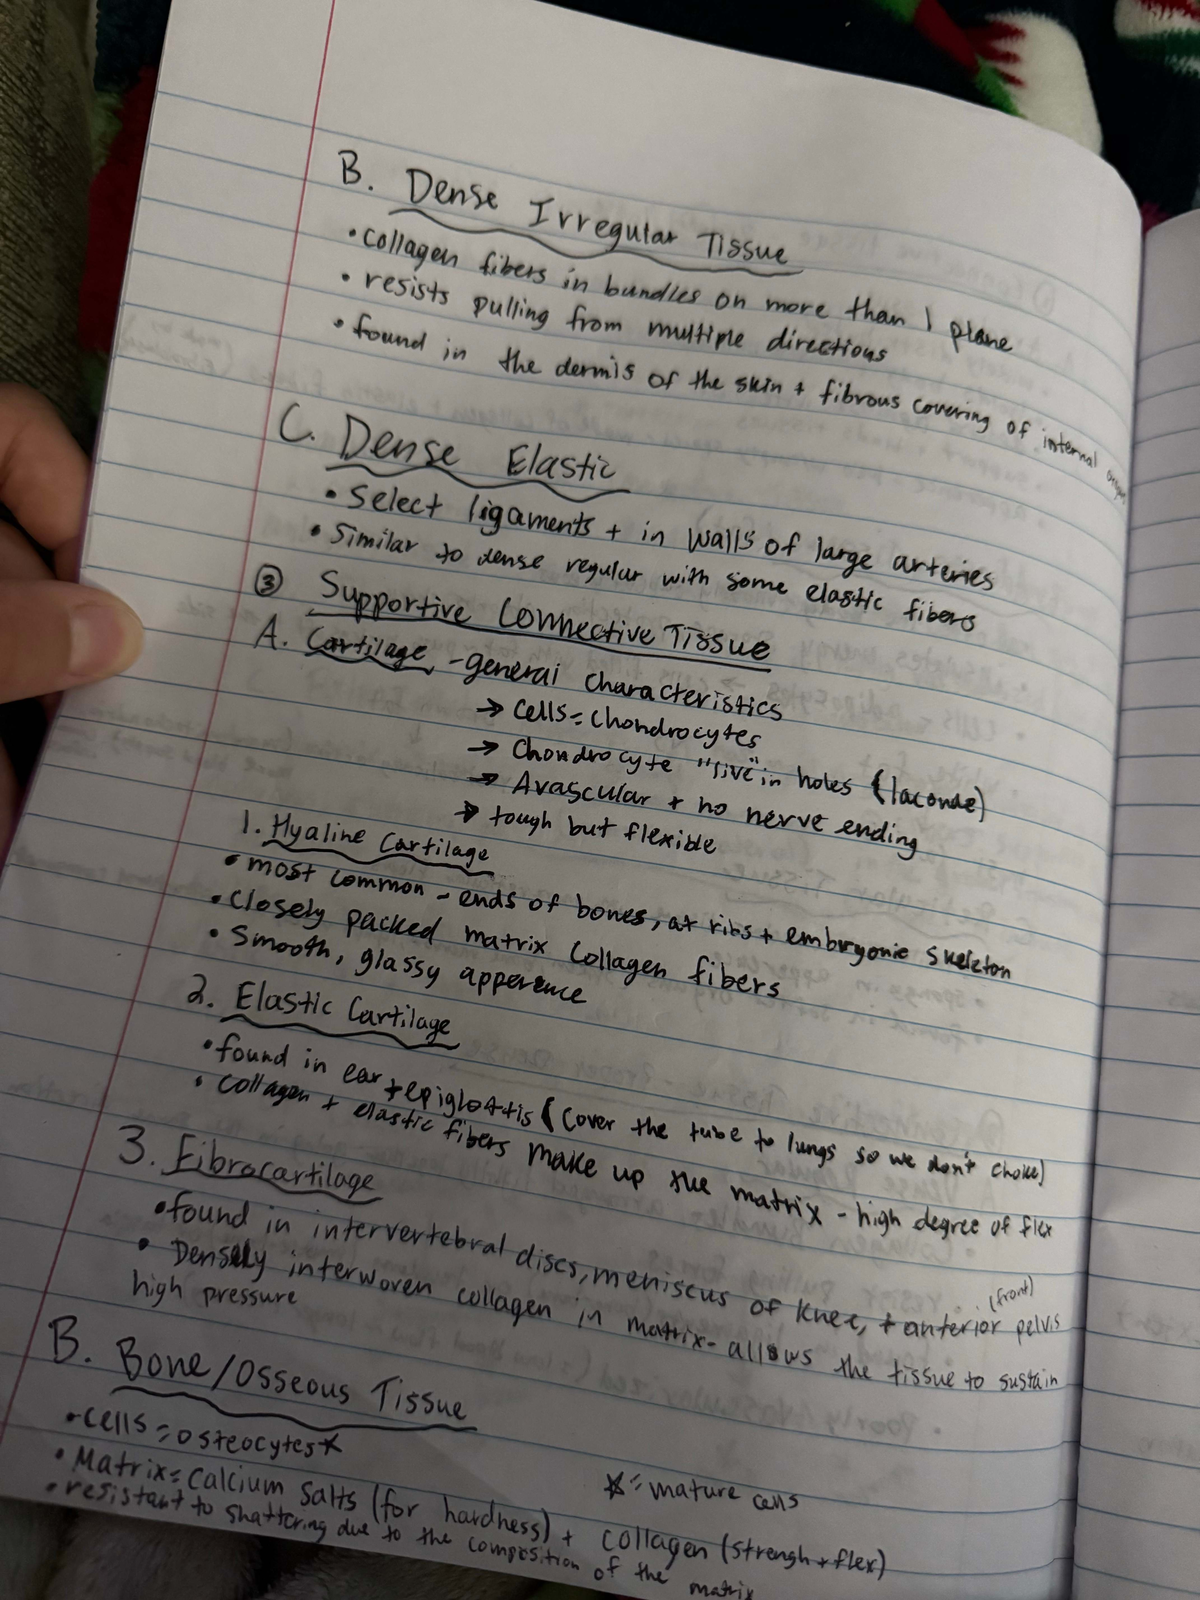 B. Dense Irregular Tissue
• collagen fibers in bundles on more than 1 plane
• resists pulling from multiple directions
• found in the dermis of the skin + fibrous covering of internal organs
C. Dense Elastic
• Select ligaments + in walls of large arteries
• Similar to dense regular with some elastic fibers
③ Supportive Connective Tissue
A. Cartilage - general characteristics
→ Cells = Chondrocytes
→ Chondrocyte "live" in holes (laconae)
→ Avascular + no nerve ending
→ tough but flexible
1. Hyaline Cartilage
• most common - ends of bones, at ribs + embryonic skeleton
• Closely packed matrix collagen fibers
• Smooth, glassy apperence
2. Elastic Cartilage
• found in ear + epiglottis (cover the tube to lungs so we don't choke)
• Collagen + elastic fibers make up the matrix - high degree of flex
3. Fibrocartilage
• found in intervertebral discs, meniscus of knee, + anterior (front) pelvis
• Densely interwoven collagen in matrix - allows the tissue to sustain
high pressure
B. Bone/Osseous Tissue
• Cells = osteocytes*
* = mature cells
• Matrix = Calcium Salts (for hardness) + collagen (strengh + flex)
• resistant to shattering due to the composition of the matrix